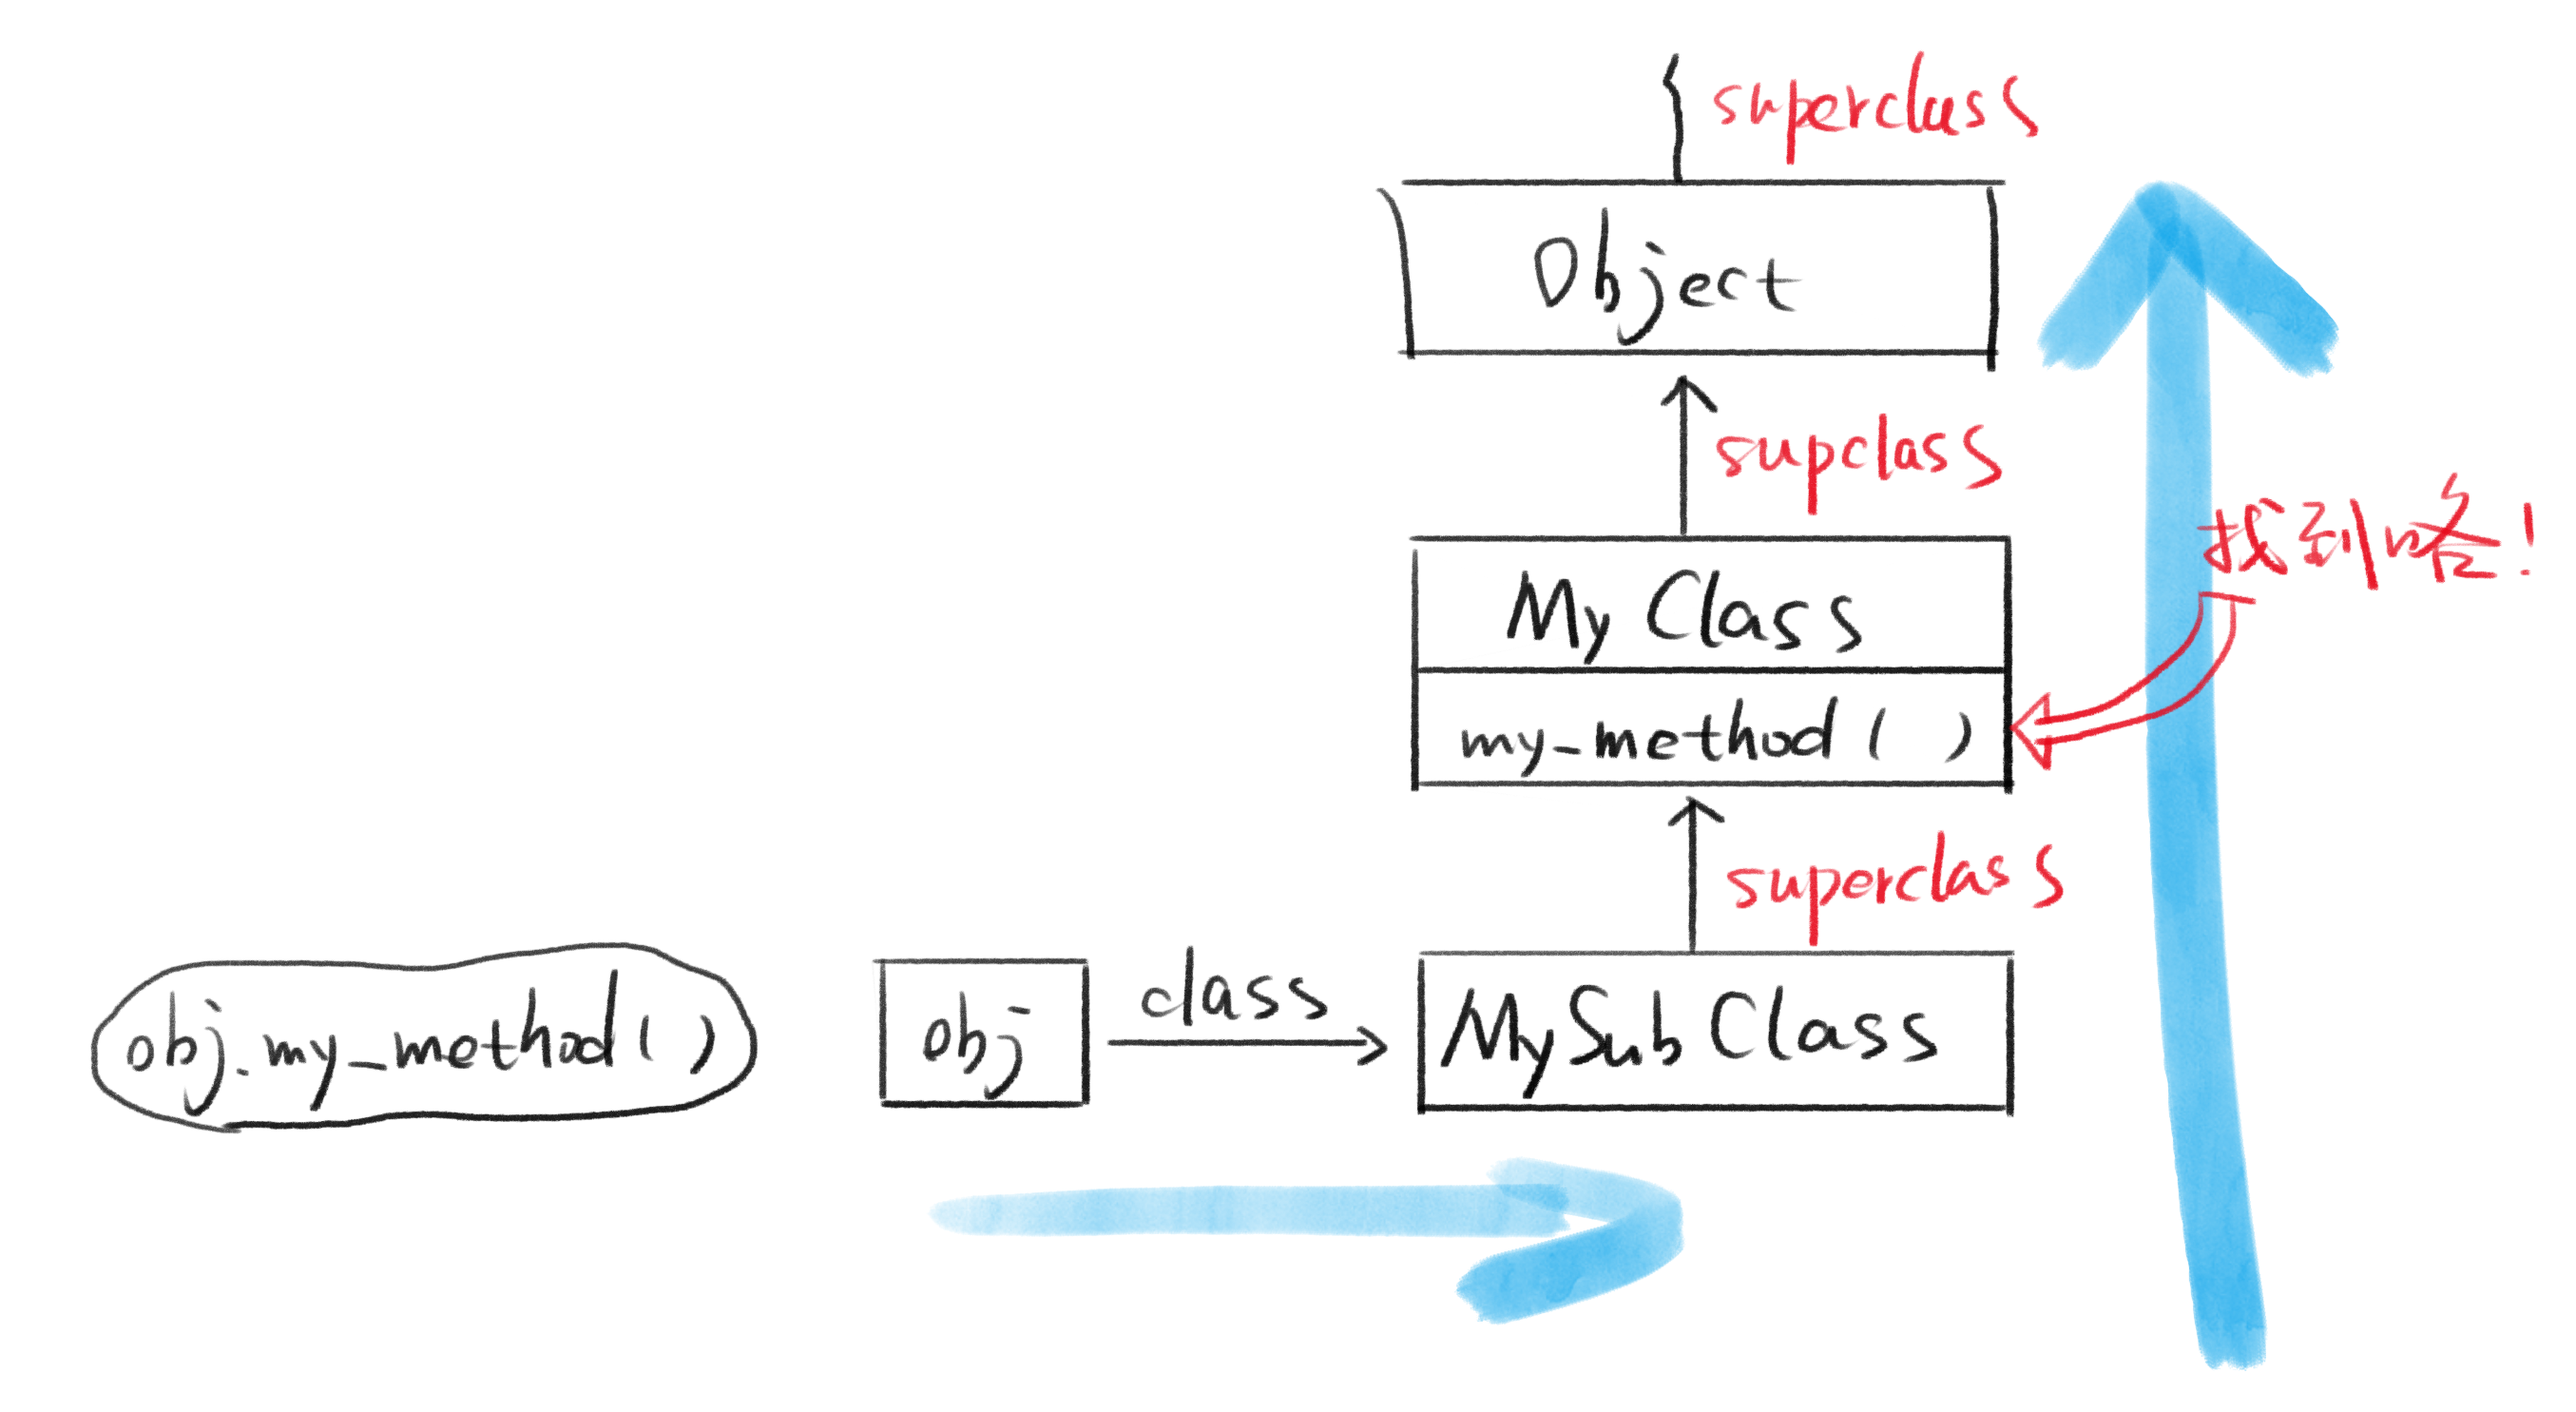 superclass
Object
supclass
找到咯!
My Class
my_method( )
superclass
obj.my_method()
obj
class
MySubClass